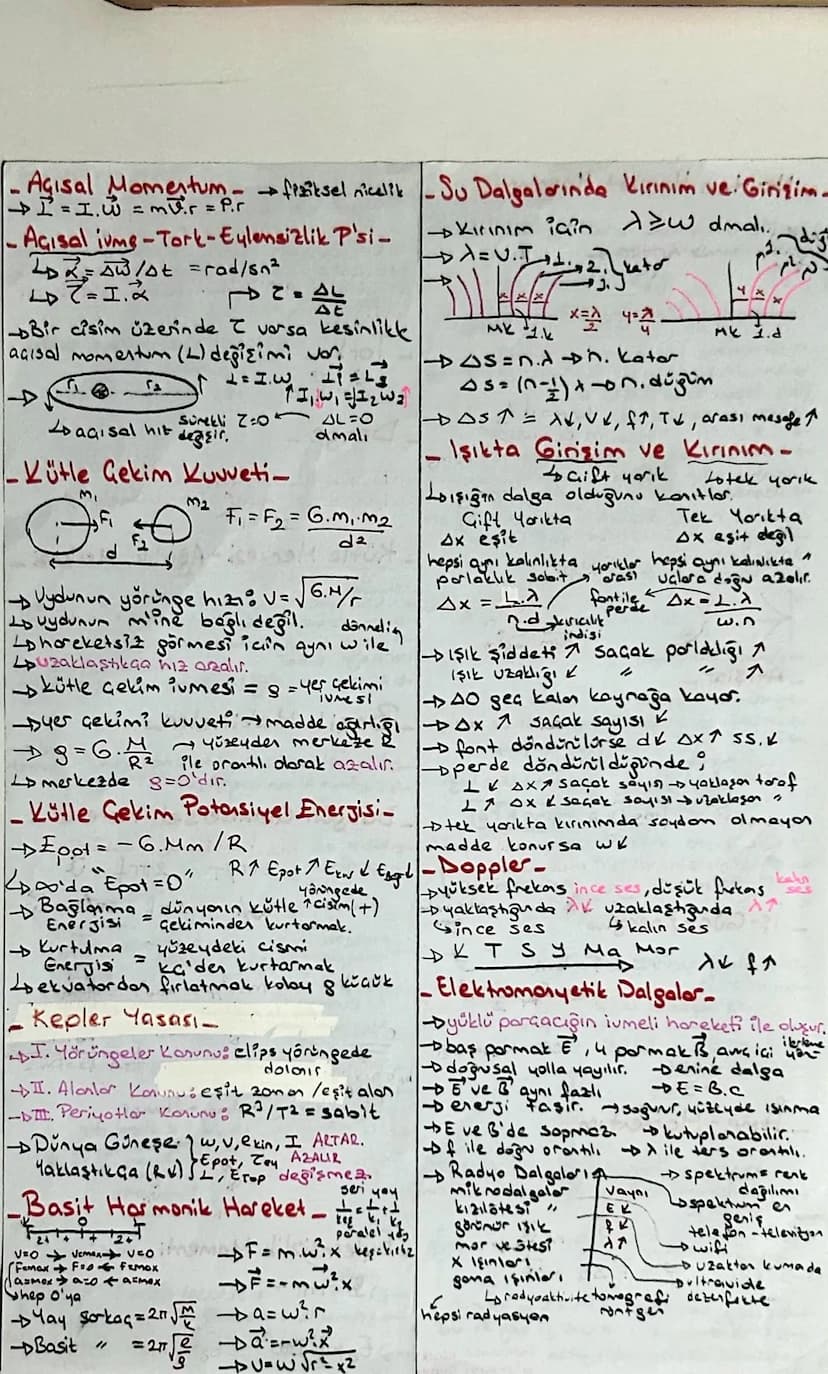 - Açısal Momentum - → fiziksel nicelik
→ L = I.w = mϑ.r = P.r
- Açısal ivme - Tork - Eylemsizlik P'si -
↳ α = Δw/Δt = rad/sn²
↳ τ = I.α → τ = ΔL/Δt
→ Bir cisim üzerinde τ varsa kesinlikle
açısal momentum (L) değişimi var.
→ r₁ r₂ L = I.w L₁ = L₂
↑I₁ w₁ = I₂ w₂↑
↳ açısal hız sürekli değişir. τ=0 ← ΔL=0 olmalı
- Kütle Çekim Kuvveti -
m₁ F₁ F₂ m₂ d
F₁ = F₂ = G.m₁.m₂ / d²
→ Uydunun yörünge hızı: V = √G.M/r
↳ uydunun m'ine bağlı değil.
↳ hareketsiz görmesi için aynı w ile dönmeli
↳ uzaklaştıkça hız azalır.
→ kütle çekim ivmesi = g = yer çekimi ivmesi
→ yer çekimi kuvveti → madde ağırlığı
→ g = G.M/R² → yüzeyden merkeze R
ile orantılı olarak azalır.
↳ merkezde g=0'dır.
- Kütle Çekim Potansiyel Enerjisi -
→ Epot = - G.Mm / R
↳ ∞'da "Epot = 0" R↑ Epot↑ Ekin↓ Ebağl↓
yörüngede
→ Bağlanma Enerjisi = dünyanın kütle ↑cisim(+)
çekiminden kurtarmak.
→ Kurtulma Enerjisi = yüzeydeki cismi
kç'den kurtarmak
↳ ekvatordan fırlatmak kolay g küçük
- Kepler Yasası -
→ I. Yörüngeler Kanunu: elips yörüngede
dolanır
→ II. Alanlar Kanunu: eşit zaman / eşit alan
→ III. Periyotlar Kanunu: R³/T² = sabit
→ Dünya Güneşe yaklaştıkça (R↓) } w, v, ekin, I ARTAR.
Epot, AZALIR
L, ETop değişmez.
- Basit Harmonik Hareket -
seri yay 1/keş = 1/k₁ + 1/k₂
paralel yay
2+ + 0 + 2+
V=0 → Vmax → V=0
Fmax → F=0 ← Fmax
amax → a=0 ← amax
hep 0'ya
→ F = m.w².x
→ F = -m w².x
→ Yay Sarkaç = 2π √m/k → a = w².r
→ a = -w².x
→ Basit " = 2π √l/g
→ V = w √r² - x²
- Su Dalgalarında Kırınım ve Girişim -
→ Kırınım için λ ≥ w olmalı.
→ λ = V.T → 1. 2. 3. } katar
x x x MK 1.k x = λ/2 y = λ/4 y x x MK 1.d
→ ΔS = n.λ → n. katar
ΔS = (n-½) λ → n. düğüm
→ ΔS↑ = λ↓, V↓, f↑, T↓, arası mesafe↑
- Işıkta Girişim ve Kırınım -
↳ çift yarık ↳ tek yarık
↳ ışığın dalga olduğunu kanıtlar.
Çift Yarıkta Tek Yarıkta
Δx eşit Δx eşit değil
hepsi aynı kalınlıkta hepsi aynı kalınlıkta "
parlaklık sabit yarıklar arası uçlara doğru azalır.
Δx = L.λ / n.d fant ile perde Δx = L.λ / w.n
kırıcılık indisi
→ Işık şiddeti ↑ saçak parlaklığı ↑
Işık uzaklığı ↓ " " ↑
→ AO geç kalan kaynağa kayar.
→ Δx ↑ saçak sayısı ↓
→ fant döndürülürse d↓ Δx↑ SS.↓
→ perde döndürüldüğünde;
L↓ Δx↑ saçak sayısı → yaklaşan taraf
L↑ Δx↓ saçak sayısı → uzaklaşan "
→ tek yarıkta kırınımda saydam olmayan
madde konursa w↓
- Doppler -
→ yüksek frekans ince ses, düşük frekans kalın ses
→ yaklaştığında λ↓ uzaklaştığında λ↑
↳ ince ses ↳ kalın ses
→ K T S Y Ma Mor λ↓ f↑
- Elektromanyetik Dalgalar -
→ yüklü parçacığın ivmeli hareketi ile oluşur.
→ baş parmak E, 4 parmak B, avuç içi ilerleme yön
→ doğrusal yolla yayılır. → enine dalga
→ E ve B aynı fazlı → E = B.c
→ enerji taşır. → soğurur, yüzeyde ısınma
→ E ve B'de sapmaz. → kutuplanabilir.
→ f ile doğru orantılı → λ ile ters orantılı.
→ Radyo Dalgaları → spektrum = renk dağılımı
mikrodalgalar V aynı ↳ spektrum en geniş
kızılötesi " E↓ telefon - televizyon
görünür ışık f↓ → wifi
mor ve ötesi λ↑ → uzaktan kumada
x ışınları → ultraviole
gama ışınları dezenfekte
↳ radyoaktivite tomografi röntgen
hepsi radyasyon